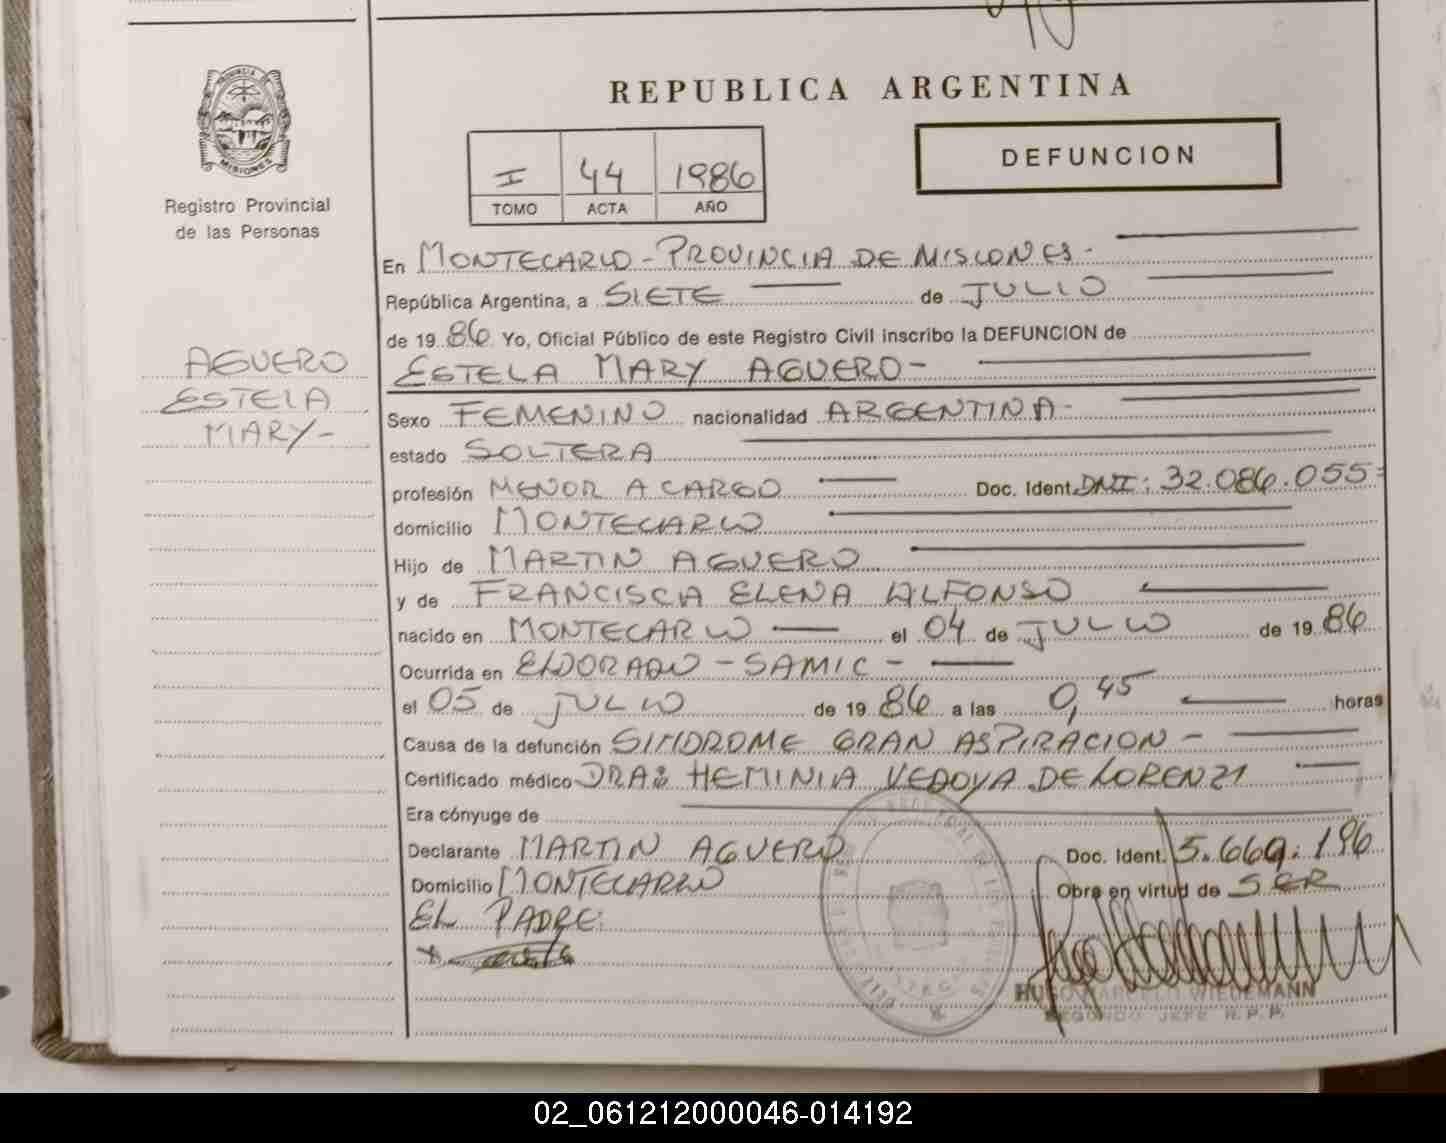 REPUBLICA ARGENTINA
PROVINCIA DE
MISIONES
Registro Provincial
de las Personas
I 44 1986
TOMO ACTA AÑO
DEFUNCION
AGUERO
ESTELA
MARY-
En MONTECARLO - PROVINCIA DE MISIONES -
República Argentina, a SIETE de JULIO
de 19 86 Yo, Oficial Público de este Registro Civil inscribo la DEFUNCION de
ESTELA MARY AGUERO -
Sexo FEMENINO nacionalidad ARGENTINA -
estado SOLTERA
profesión MENOR A CARGO Doc. Ident. DNI: 32.086.055=
domicilio MONTECARLO
Hijo de MARTIN AGUERO
y de FRANCISCA ELENA ALFONSO
nacido en MONTECARLO el 04 de JULIO de 19 86
Ocurrida en ELDORADO - SAMIC -
el 05 de JULIO de 19 86 a las 0,45 horas
Causa de la defunción SINDROME GRAN ASPIRACION -
Certificado médico DRA: HEMINIA VEDOYA DE LORENZI
Era cónyuge de
Declarante MARTIN AGUERO Doc. Ident. 5.669.196
Domicilio MONTECARLO Obra en virtud de SER
EL PADRE.
HUGO MARCELO WIEDEMANN
SEGUNDO JEFE R.P.P.
02_061212000046-014192